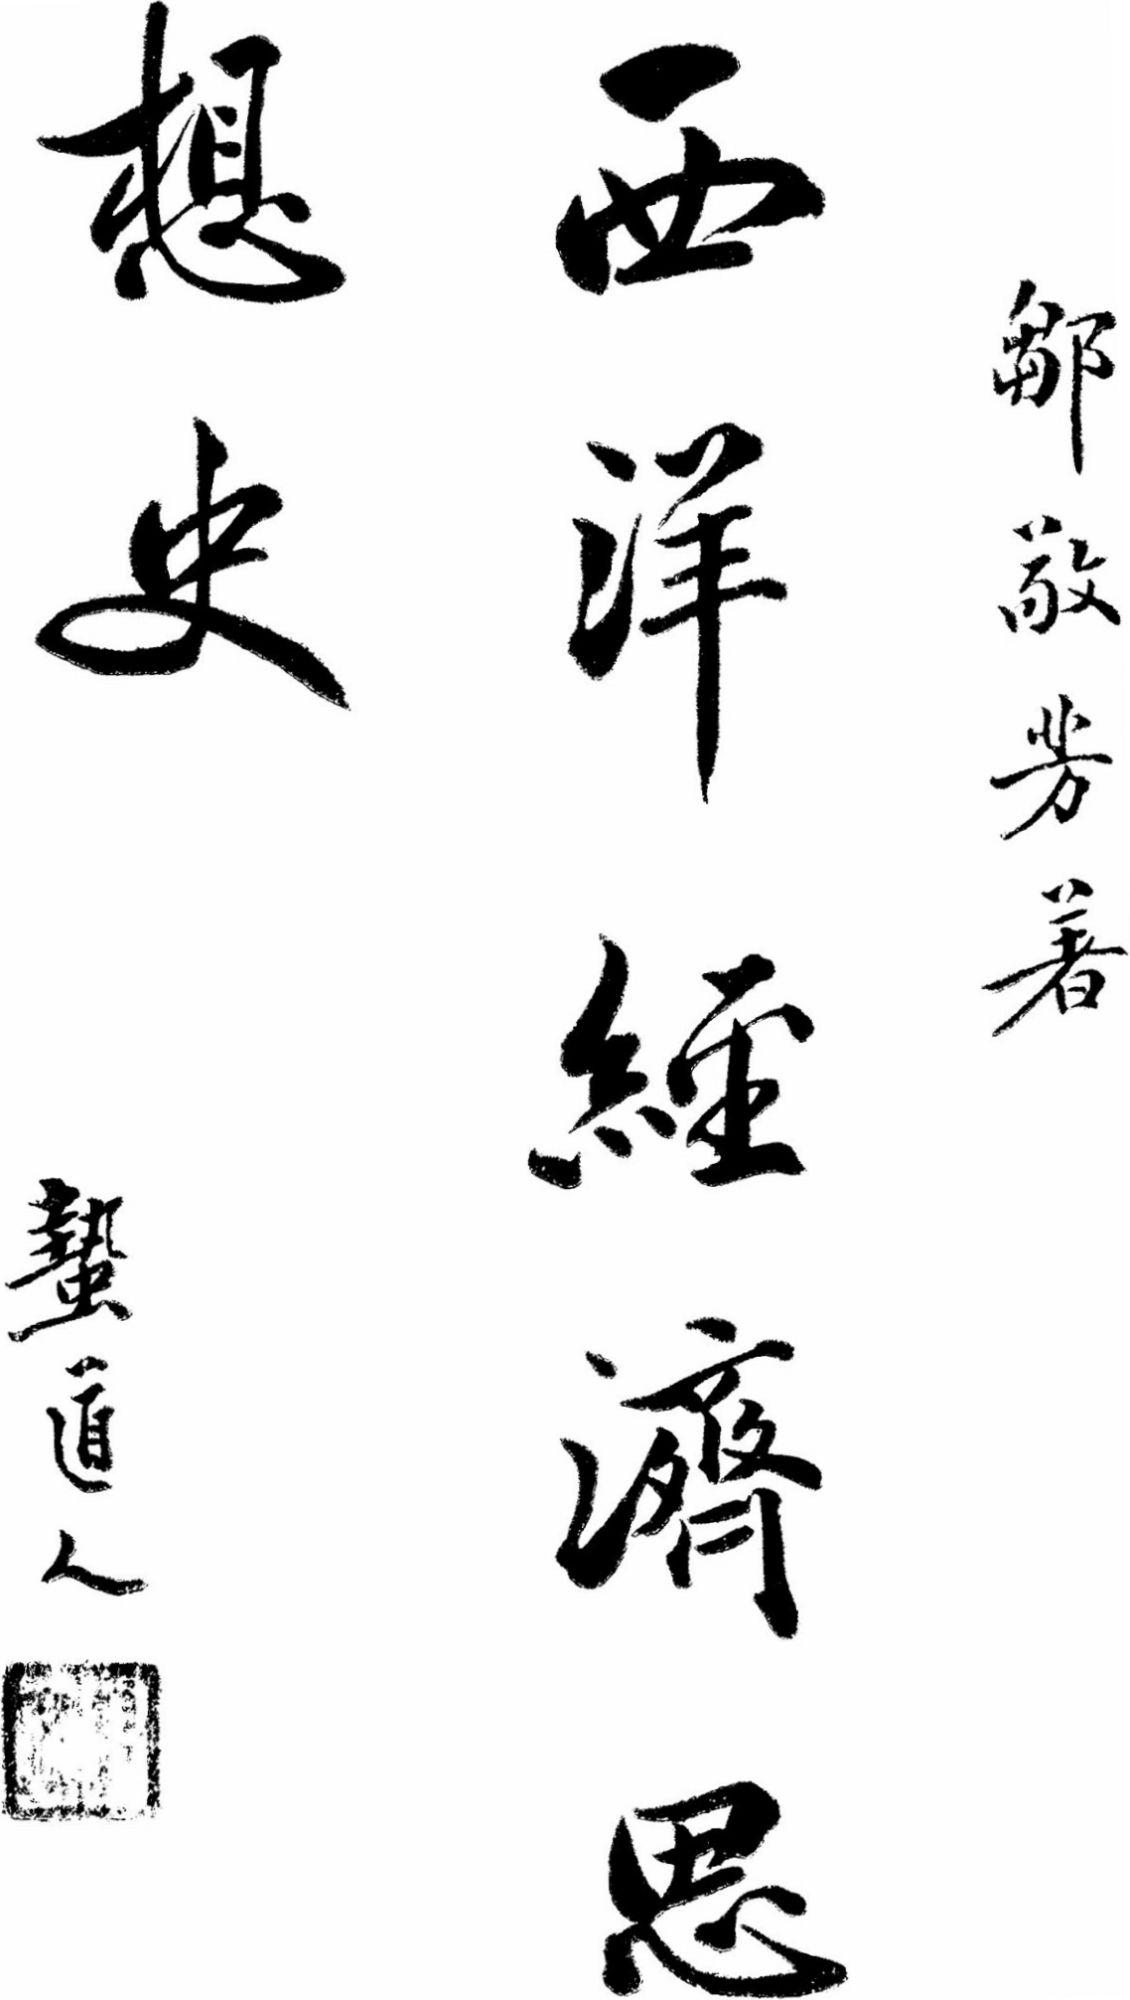 鄒敬芳著
西洋經濟思
想史
蟄道人